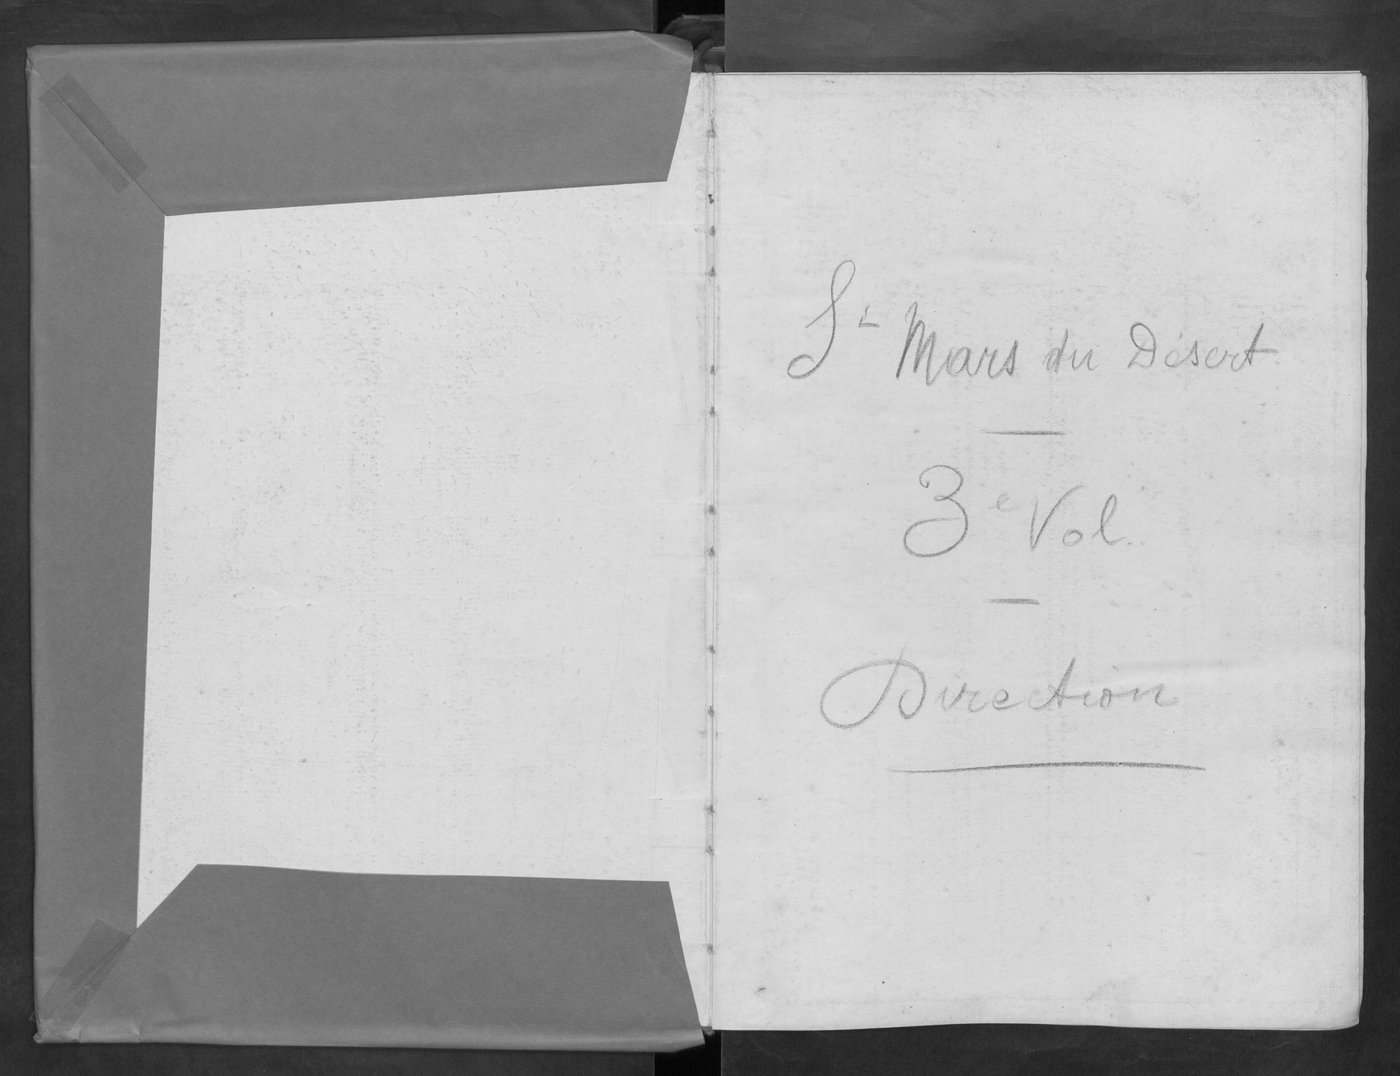 St Mars du Désert
3e Vol.
Direction